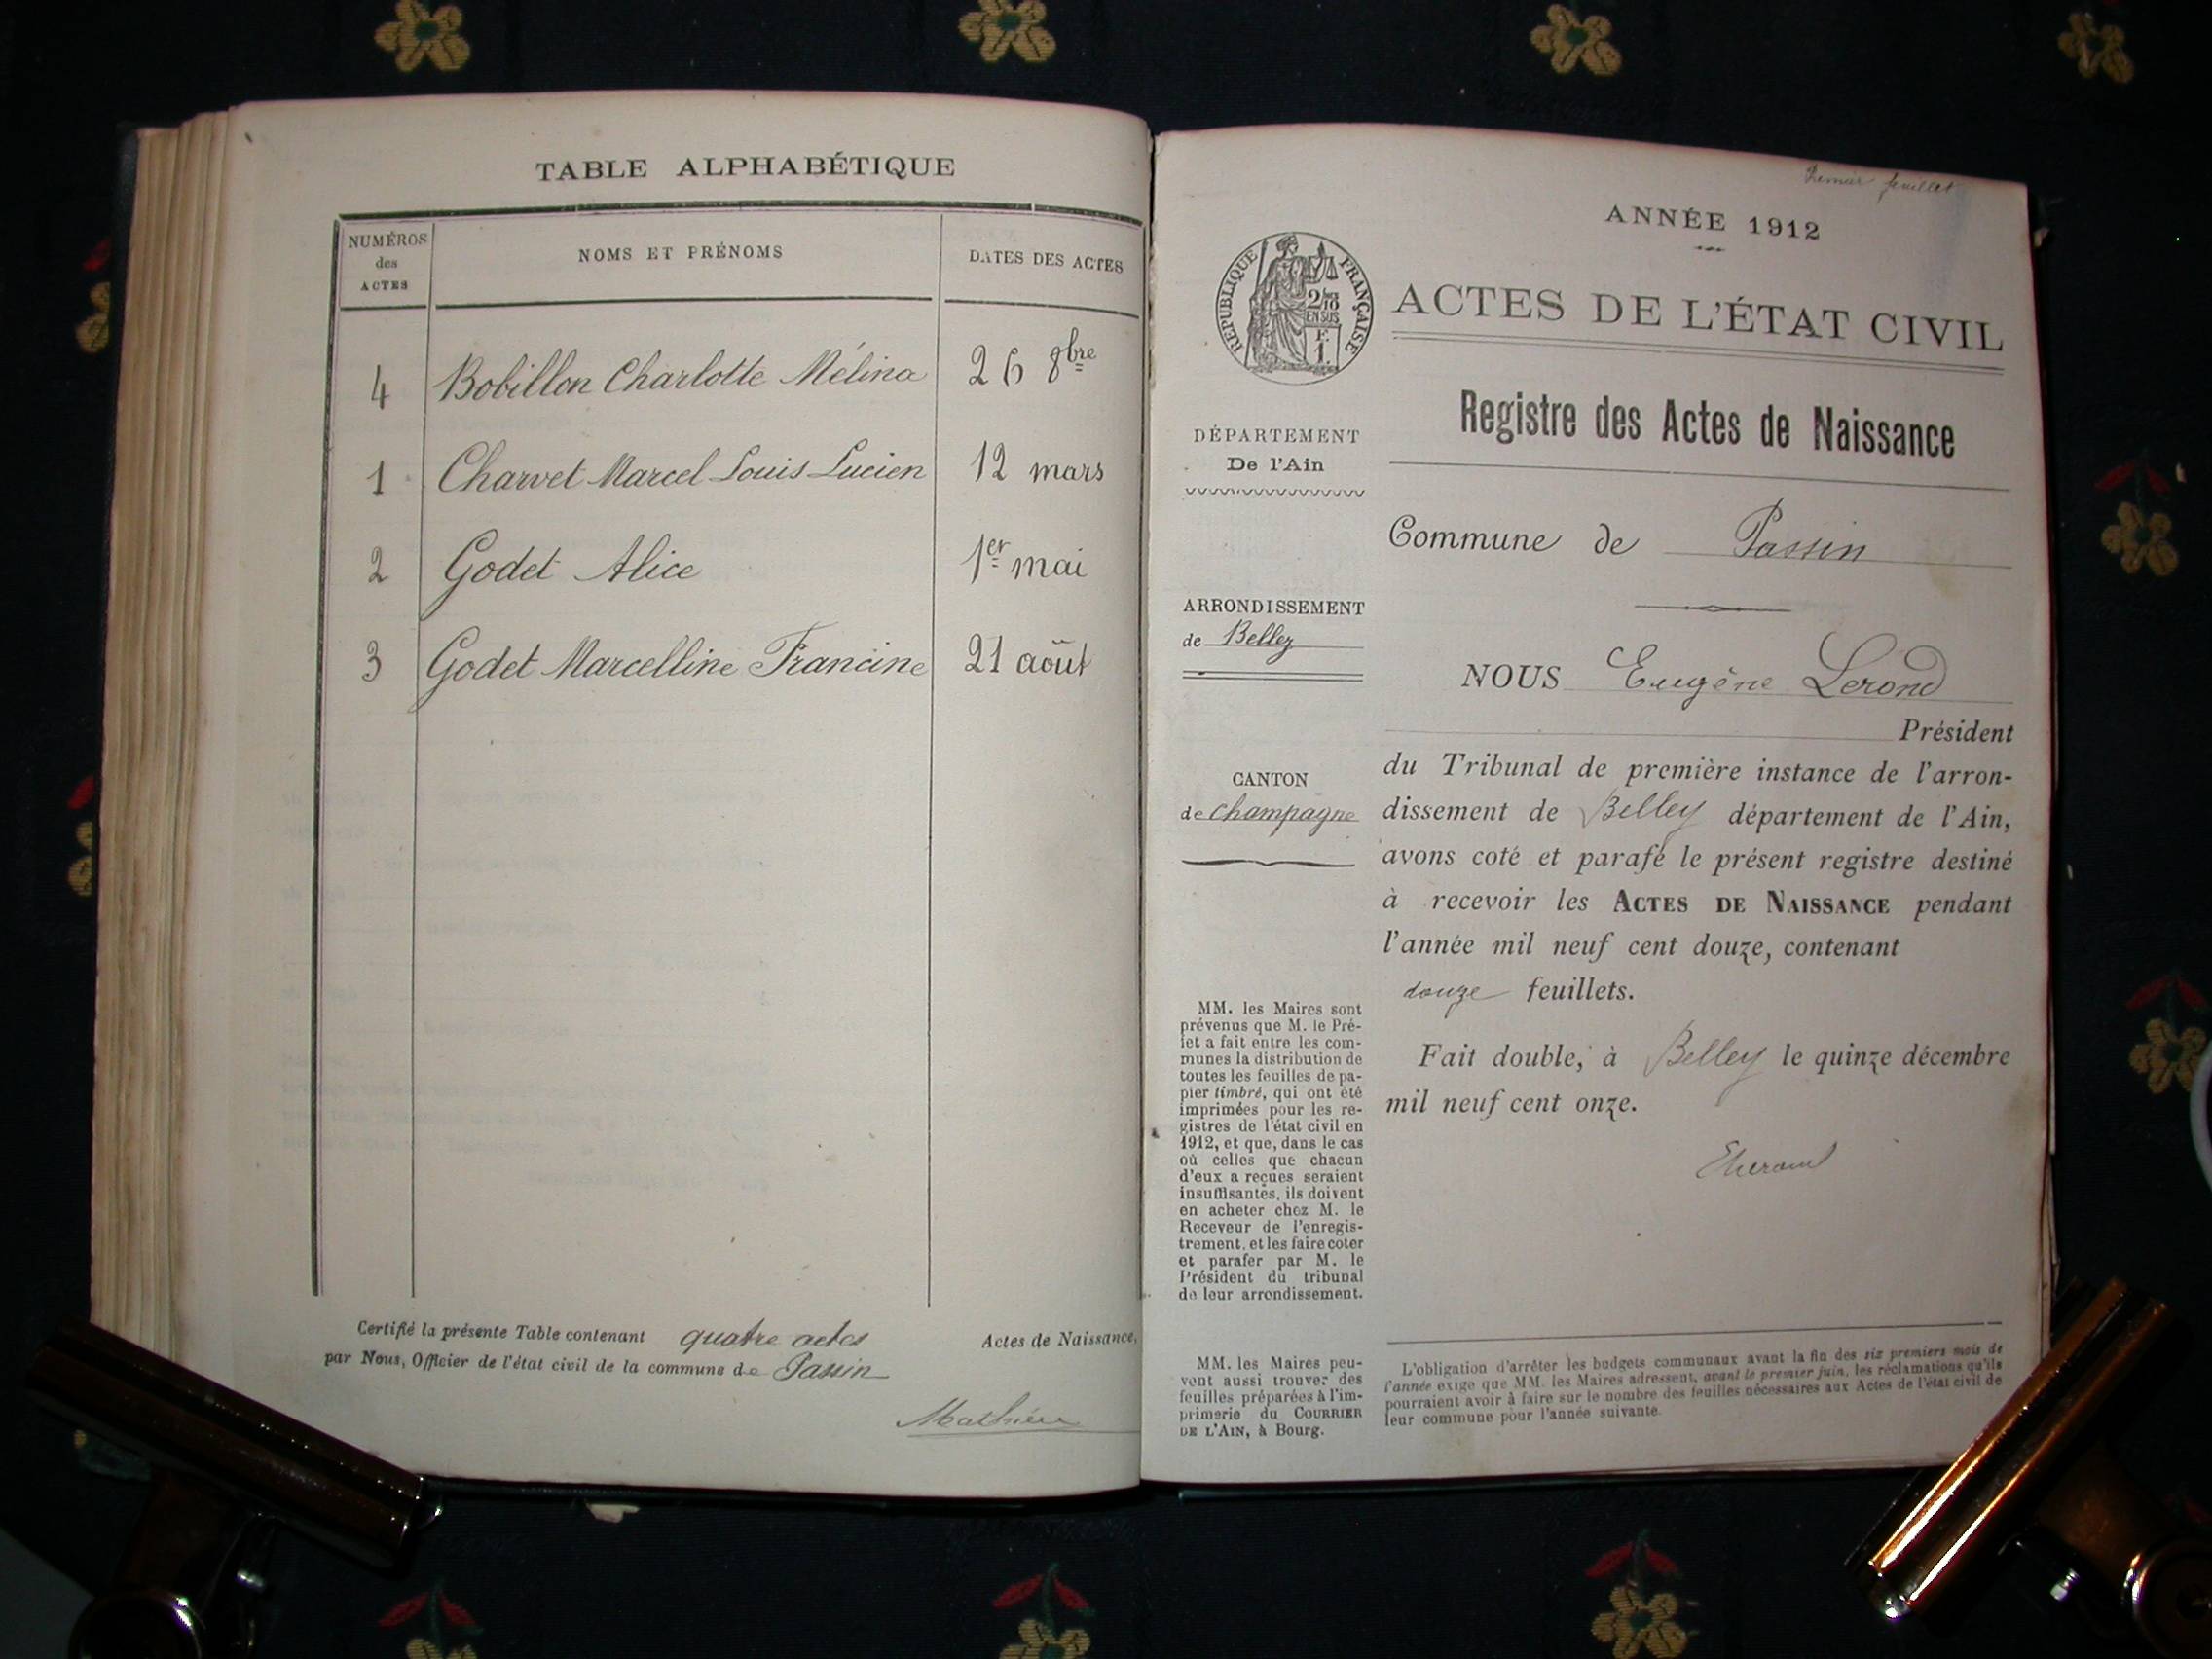 TABLE ALPHABÉTIQUE
NUMÉROS
des
ACTES
NOMS ET PRÉNOMS
DATES DES ACTES
4 Bobillon Charlotte Mélina 26 8bre
1 Charvet Marcel Louis Lucien 12 mars
2 Godet Alice 1er mai
3 Godet Marcelline Francine 21 août
Certifié la présente Table contenant quatre actes Actes de Naissance,
par Nous, Officier de l'état civil de la commune de Passin
Mathieu
Premier feuillet
ANNÉE 1912
RÉPUBLIQUE FRANÇAISE
2/10
EN SUS
F.
1.
ACTES DE L'ÉTAT CIVIL
Registre des Actes de Naissance
DÉPARTEMENT
De l'Ain
Commune de Passin
ARRONDISSEMENT
de Belley
NOUS Eugène Lerond
Président
CANTON
de Champagne
du Tribunal de première instance de l'arron-
dissement de Belley département de l'Ain,
avons coté et parafé le présent registre destiné
à recevoir les ACTES DE NAISSANCE pendant
l'année mil neuf cent douze, contenant
douze feuillets.
Fait double, à Belley le quinze décembre
mil neuf cent onze.
MM. les Maires sont
prévenus que M. le Pré-
fet a fait entre les com-
munes la distribution de
toutes les feuilles de pa-
pier timbré, qui ont été
imprimées pour les re-
gistres de l'état civil en
1912, et que, dans le cas
où celles que chacun
d'eux a reçues seraient
insuffisantes, ils doivent
en acheter chez M. le
Receveur de l'enregis-
trement, et les faire coter
et parafer par M. le
Président du tribunal
de leur arrondissement.
MM. les Maires peu-
vent aussi trouver des
feuilles préparées à l'im-
primerie du COURRIER
DE L'AIN, à Bourg.
L'obligation d'arrêter les budgets communaux avant la fin des six premiers mois de
l'année exige que MM. les Maires adressent, avant le premier juin, les réclamations qu'ils
pourraient avoir à faire sur le nombre des feuilles nécessaires aux Actes de l'état civil de
leur commune pour l'année suivante.